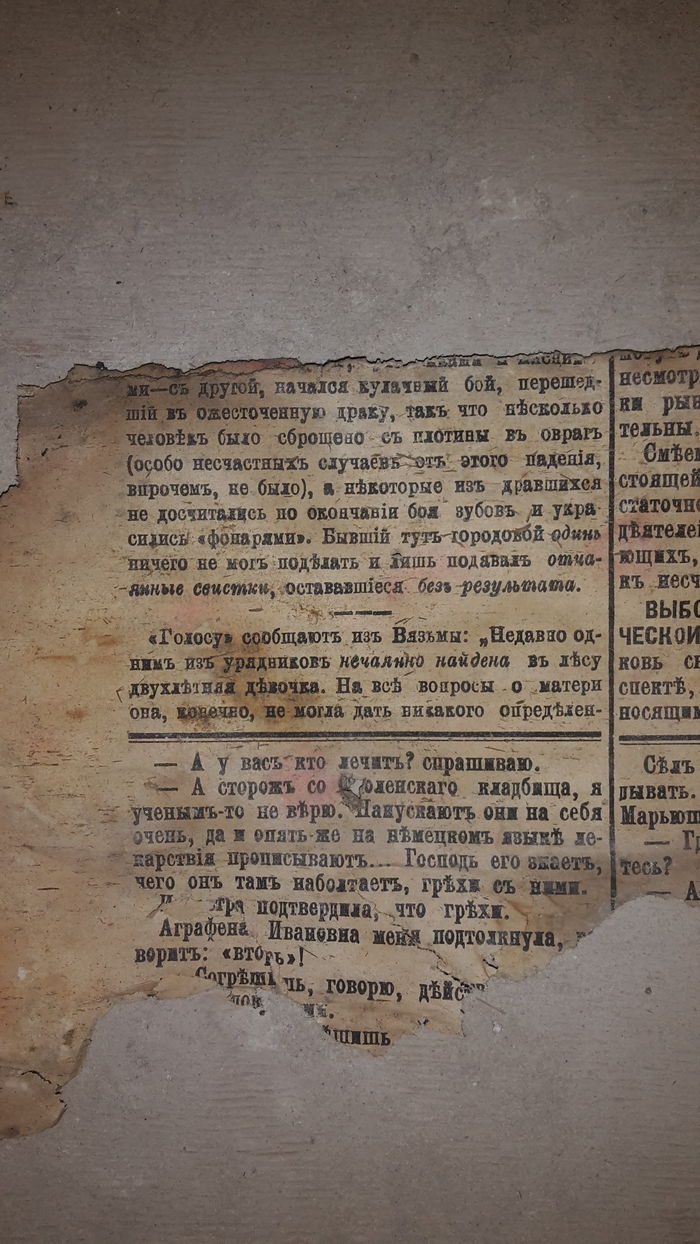 ми—съ другой, начался кулачный бой, перешед-
шій въ ожесточенную драку, такъ что нѣсколько
человѣкъ было сброшено съ плотины въ оврагъ
(особо несчастныхъ случаевъ отъ этого паденія,
впрочемъ, не было), а нѣкоторые изъ дравшихся
не досчитались по окончаніи боя зубовъ и укра
сились «фонарями». Бывшій тутъ городовой одинъ
ничего не могъ подѣлать и лишь подавалъ отча-
янные свистки, остававшіеся безъ результата.
«Голосу» сообщаютъ изъ Вязьмы: „Недавно од-
нимъ изъ урядниковъ нечаянно найдена въ лѣсу
двухлѣтняя дѣвочка. На всѣ вопросы о матери
она, конечно, не могла дать никакого опредѣлен-
— А у васъ кто лечитъ? спрашиваю.
— А сторожъ со Смоленскаго кладбища, я
ученымъ-то не вѣрю. Напускаютъ они на себя
очень, да и опять-же на нѣмецкомъ языкѣ ле-
карствія прописываютъ... Господь его знаетъ,
чего онъ тамъ наболтаетъ, грѣхи съ ними.
подтвердила, что грѣхи.
Аграфена Ивановна меня подтолкнула,
воритъ: «вторь»!
говорю,
несмотр
ки рын
тельны.
Смѣем
стоящей
статочно
дѣятелей
ющихъ,
къ несч
ВЫБО
ЧЕСКОЙ
ковь сн
спектѣ,
носящим
Сѣлъ
дывать.
Марьюш
— Гр
тесь?
— А